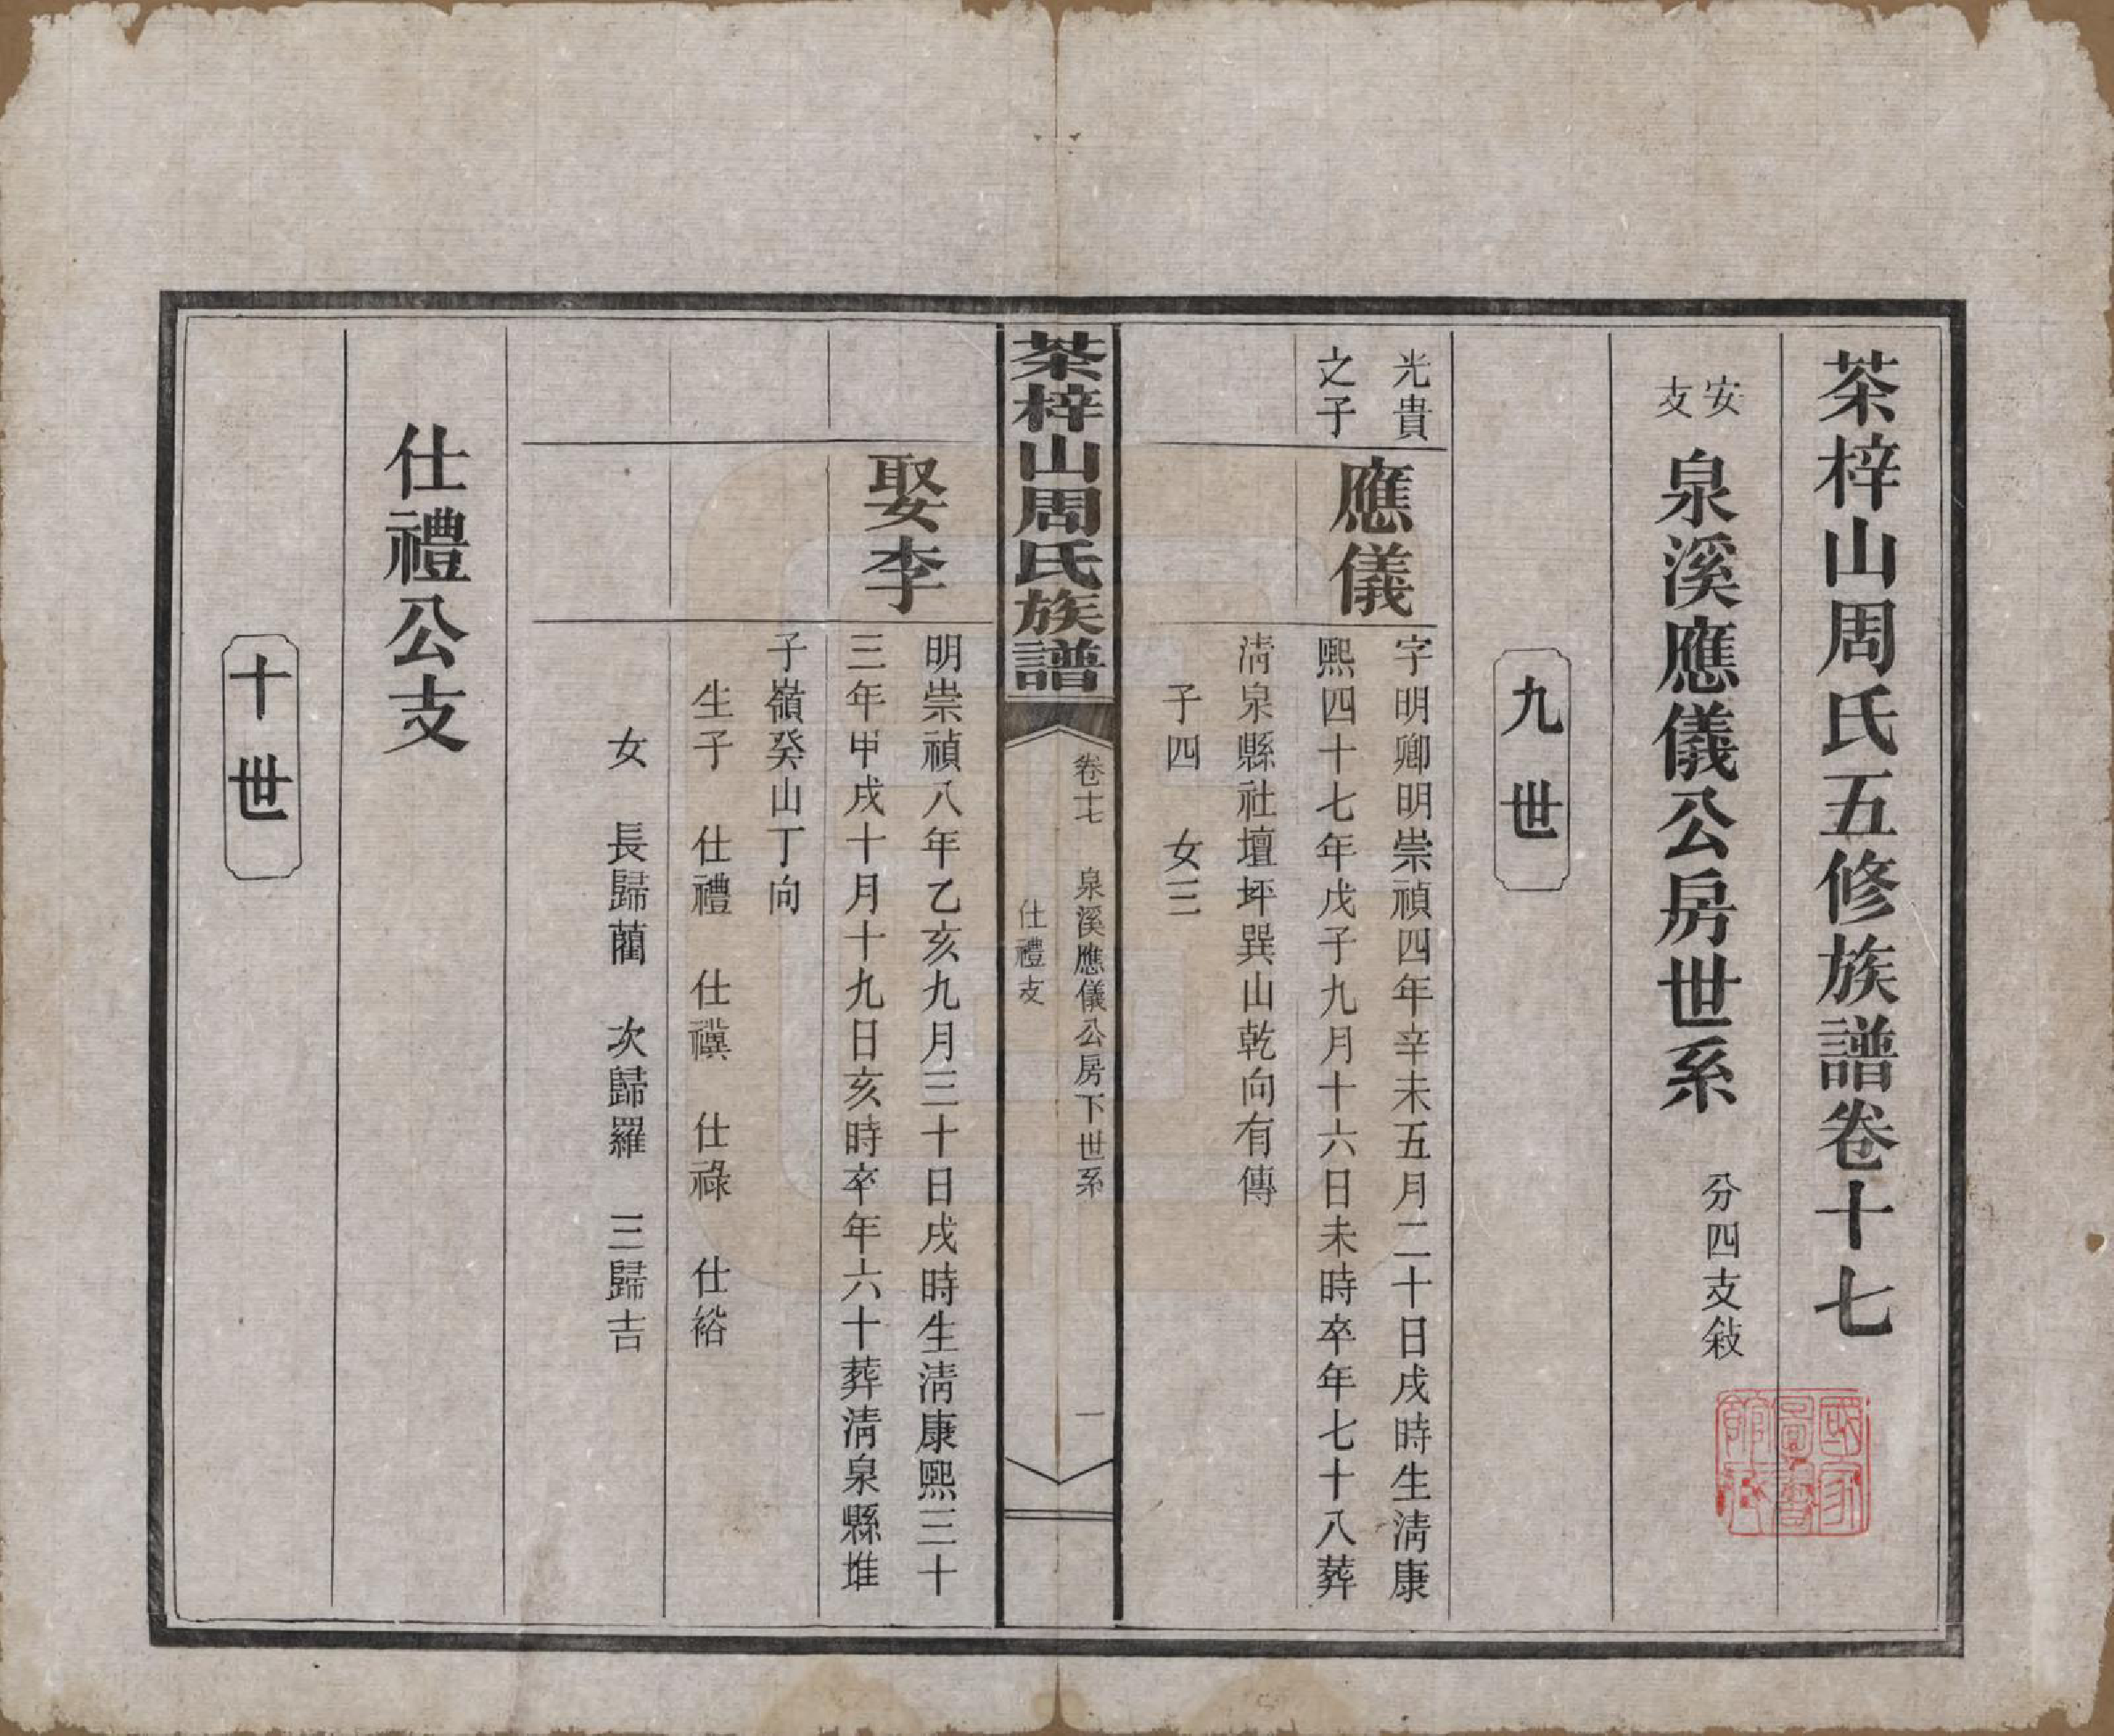 茶梓山周氏五修族譜卷十七
安支
泉溪應儀公房世系
分四支敍
九世
光貴
之子
應儀
字明卿明崇禎四年辛未五月二十日戌時生清康
熙四十七年戊子九月十六日未時卒年七十八葬
清泉縣社壇坪巽山乾向有傳
子四　女三
茶梓山周氏族譜
卷十七　泉溪應儀公房下世系　一
仕禮支
娶李
明崇禎八年乙亥九月三十日戌時生清康熙三十
三年甲戌十月十九日亥時卒年六十葬清泉縣堆
子嶺癸山丁向
生子　仕禮　仕禩　仕祿　仕裕
女　長歸藺　次歸羅　三歸吉
仕禮公支
十世
國家
圖書
館藏